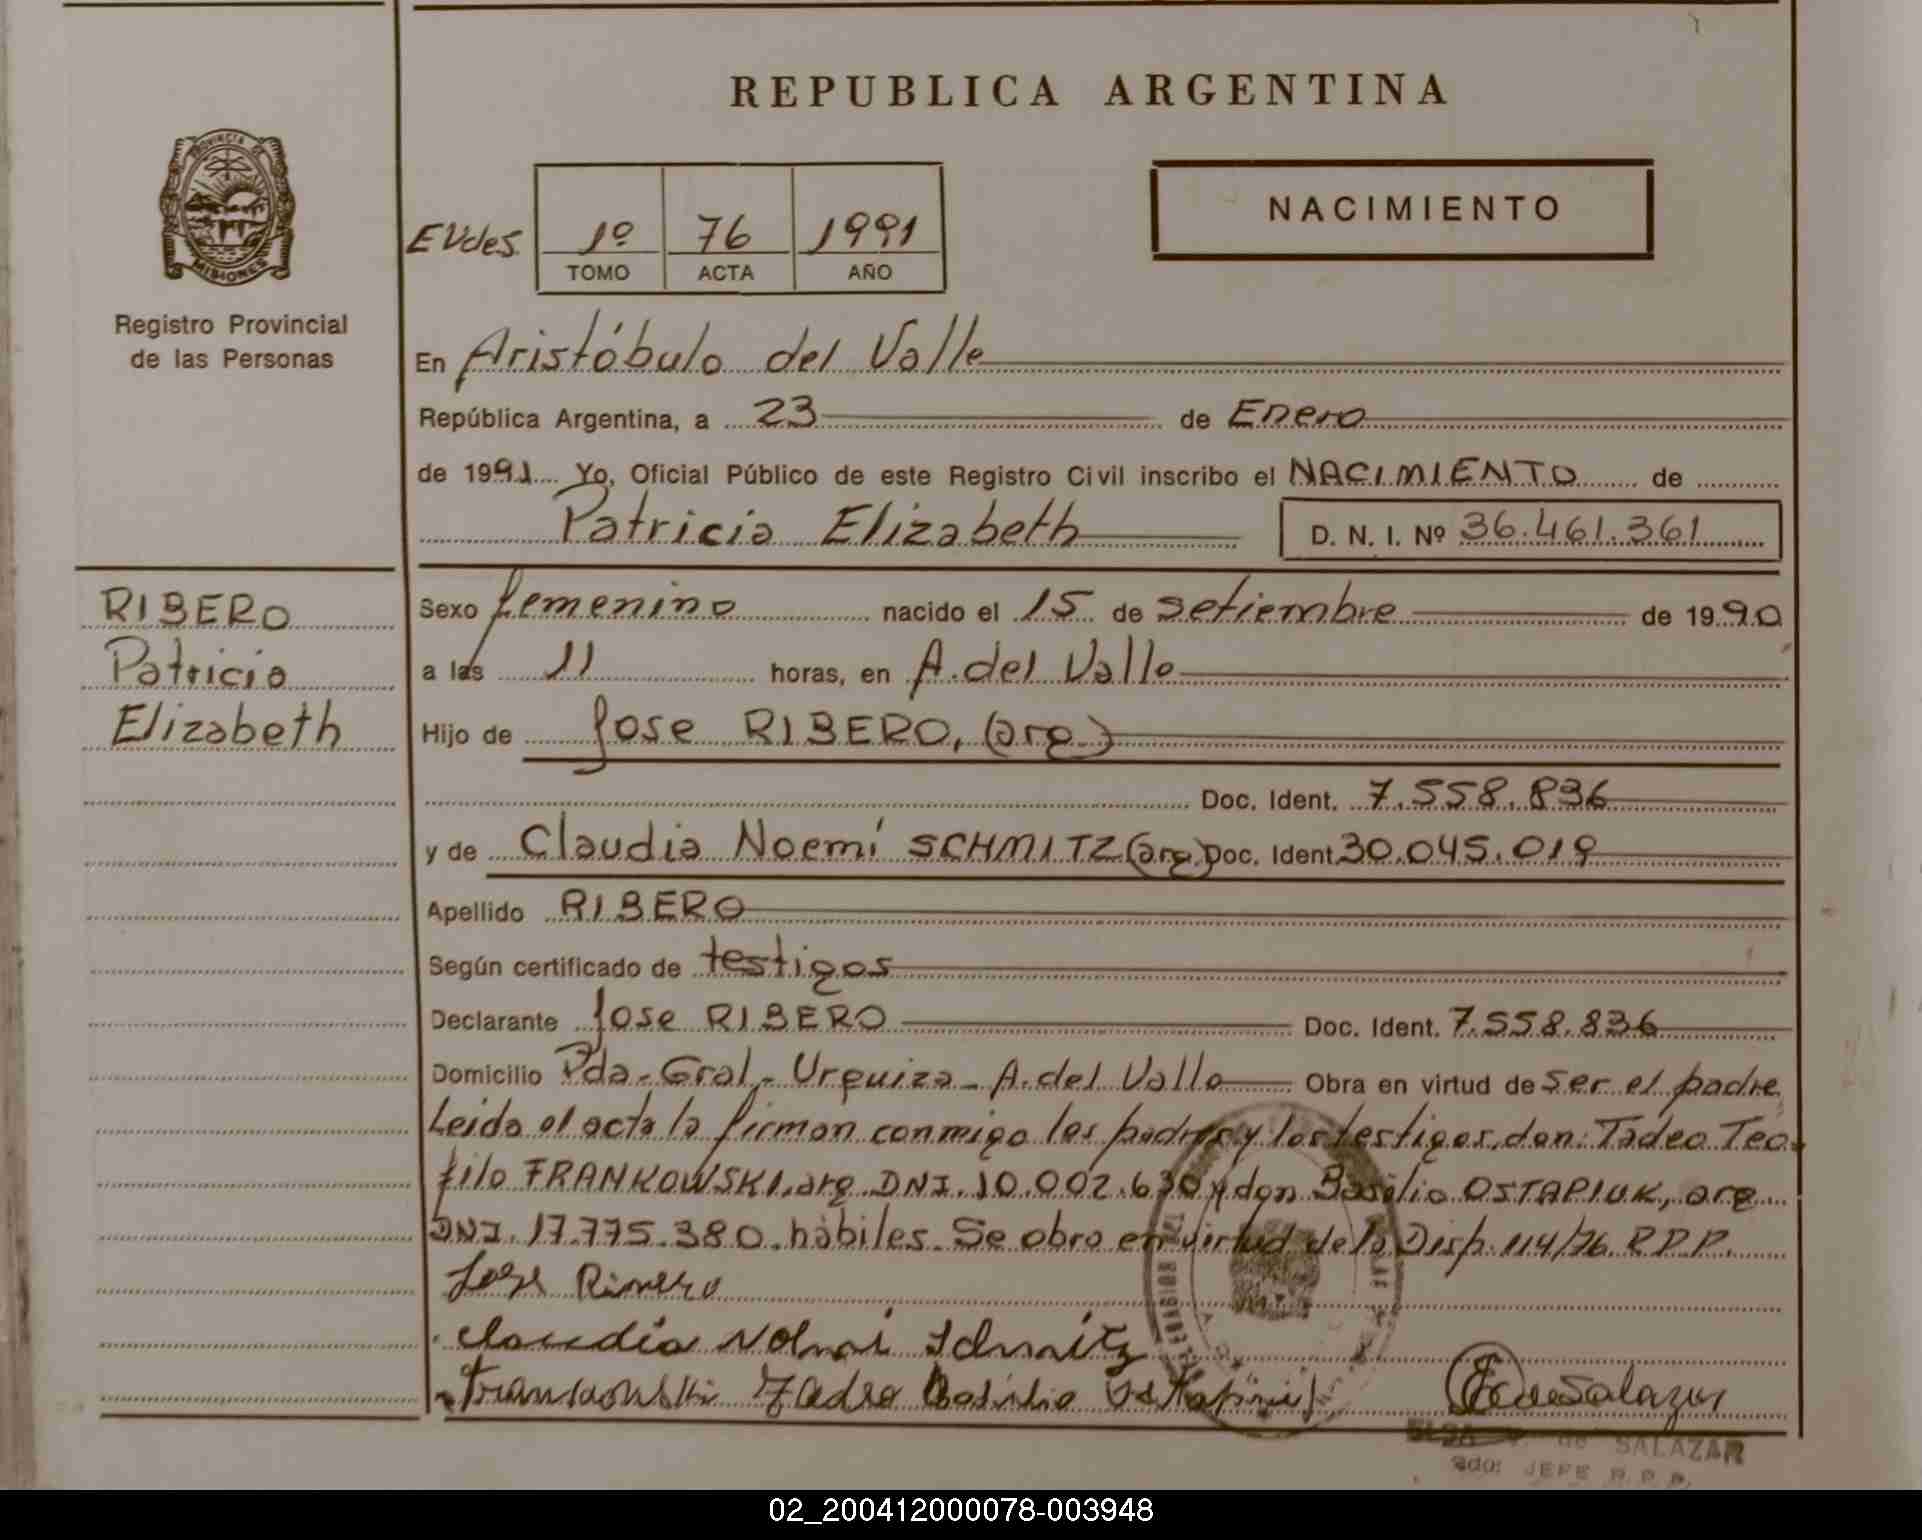 REPUBLICA ARGENTINA
PROVINCIA DE
MISIONES
Registro Provincial
de las Personas
NACIMIENTO
EVdes. 1º 76 1991
TOMO ACTA AÑO
En Aristóbulo del Valle
República Argentina, a 23 de Enero
de 1991 Yo, Oficial Público de este Registro Civil inscribo el NACIMIENTO de
Patricia Elizabeth D. N. I. Nº 36.461.361
RIBERO
Patricia
Elizabeth
Sexo femenino nacido el 15 de setiembre de 1990
a las 11 horas, en A. del Valle
Hijo de Jose RIBERO, (arg)
Doc. Ident. 7.558.836
y de Claudia Noemí SCHMITZ (arg) Doc. Ident. 30.045.019
Apellido RIBERO
Según certificado de testigos
Declarante Jose RIBERO Doc. Ident. 7.558.836
Domicilio Pda-Gral-Urquiza-A.del Valle Obra en virtud de ser el padre
Leida el acta la firman conmigo los padres y los testigos, don: Tadeo Teo-
filo FRANKOWSKI, arg DNI. 10.002.630 y don Basilio OSTAPIUK, arg
DNI. 17.775.380. hábiles. Se obra en virtud de la Disp. 114/76 R.P.P.
Jose Rivero
Claudia Nohmi Schmitz
Frankowski Tadeo Basilio Ostapiuk
de Salazar
de SALAZAR
JEFE R.P.P.
02_200412000078-003948